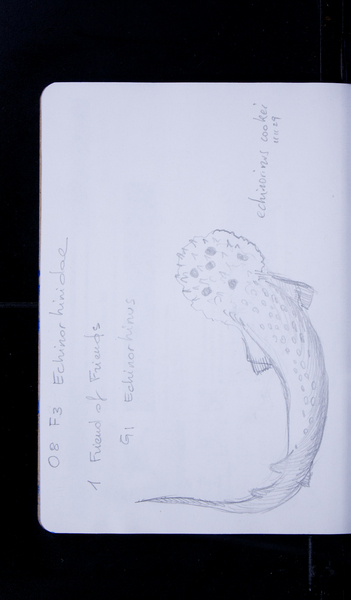 08 F3 Echinorhinidae
1 Friend of Friends
G1 Echinorhinus
echinorinus cookei